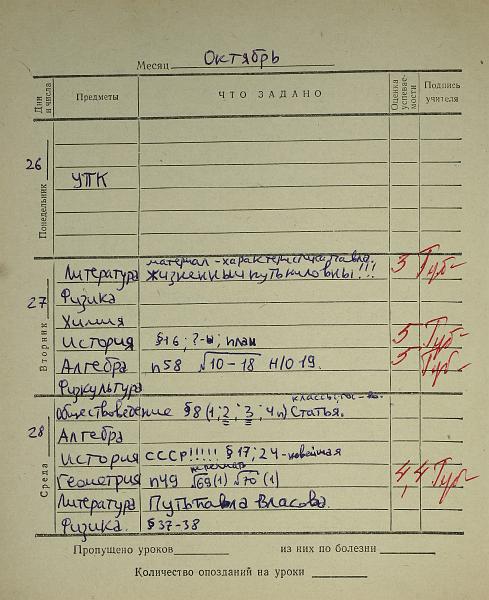 Месяц Октябрь
Дни и числа Предметы ЧТО ЗАДАНО Оценка успевае-мости Подпись учителя
Понедельник 26
УПК
Вторник 27
материал - характеристика Павла.
Литература Жизненный путь Ниловны!!! 3
Физика
Химия
История §16; ?-ы; план 5
Алгебра п58 √10-18 Н/О 19. 5
Физкультура
Среда 28
классы, гос-во.
Обществоведение §8 (1; 2; 3; 4п) Статья.
Алгебра
История СССР!!!!! §17; 24-новейшая
Геометрия п49 √69(1) √70(1) 4,4
Литература Путь Павла Власова.
Физика. §37-38
Пропущено уроков из них по болезни
Количество опозданий на уроки